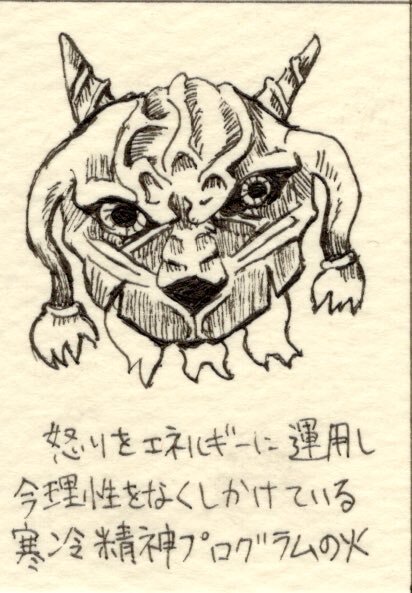 怒りをエネルギーに運用し
今理性をなくしかけている
寒冷精神プログラムの火